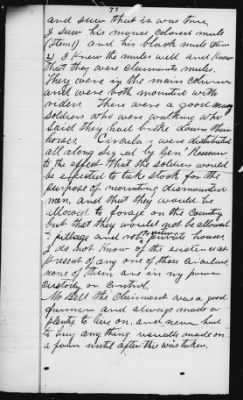 and saw that it was true,
I saw his mouse colored mule
(Item 1) and his black mule (Item
2) I knew the mules well and know
that they were Claimants mules.
They were in the main column
and were both mounted with
riders. There were a good many
soldiers who were walking who
said they had broke down their
horses. Circulars were distributed
all along by Gen Rosecrans
to the effect that the soldiers would
be expected to take stock for the
purpose of mounting dismounted
men, and that they would be
allowed to forage on the Country
but that they would not be allowed
to pillage and rob private houses
I do not know of the existence at
present of any one of these circulars
none of them are in my power
custody or control.
Mr Bell the Claimant was a good
farmer and always made a
plenty to live on, and never had
to buy any thing usually made on
a farm until after this was taken.